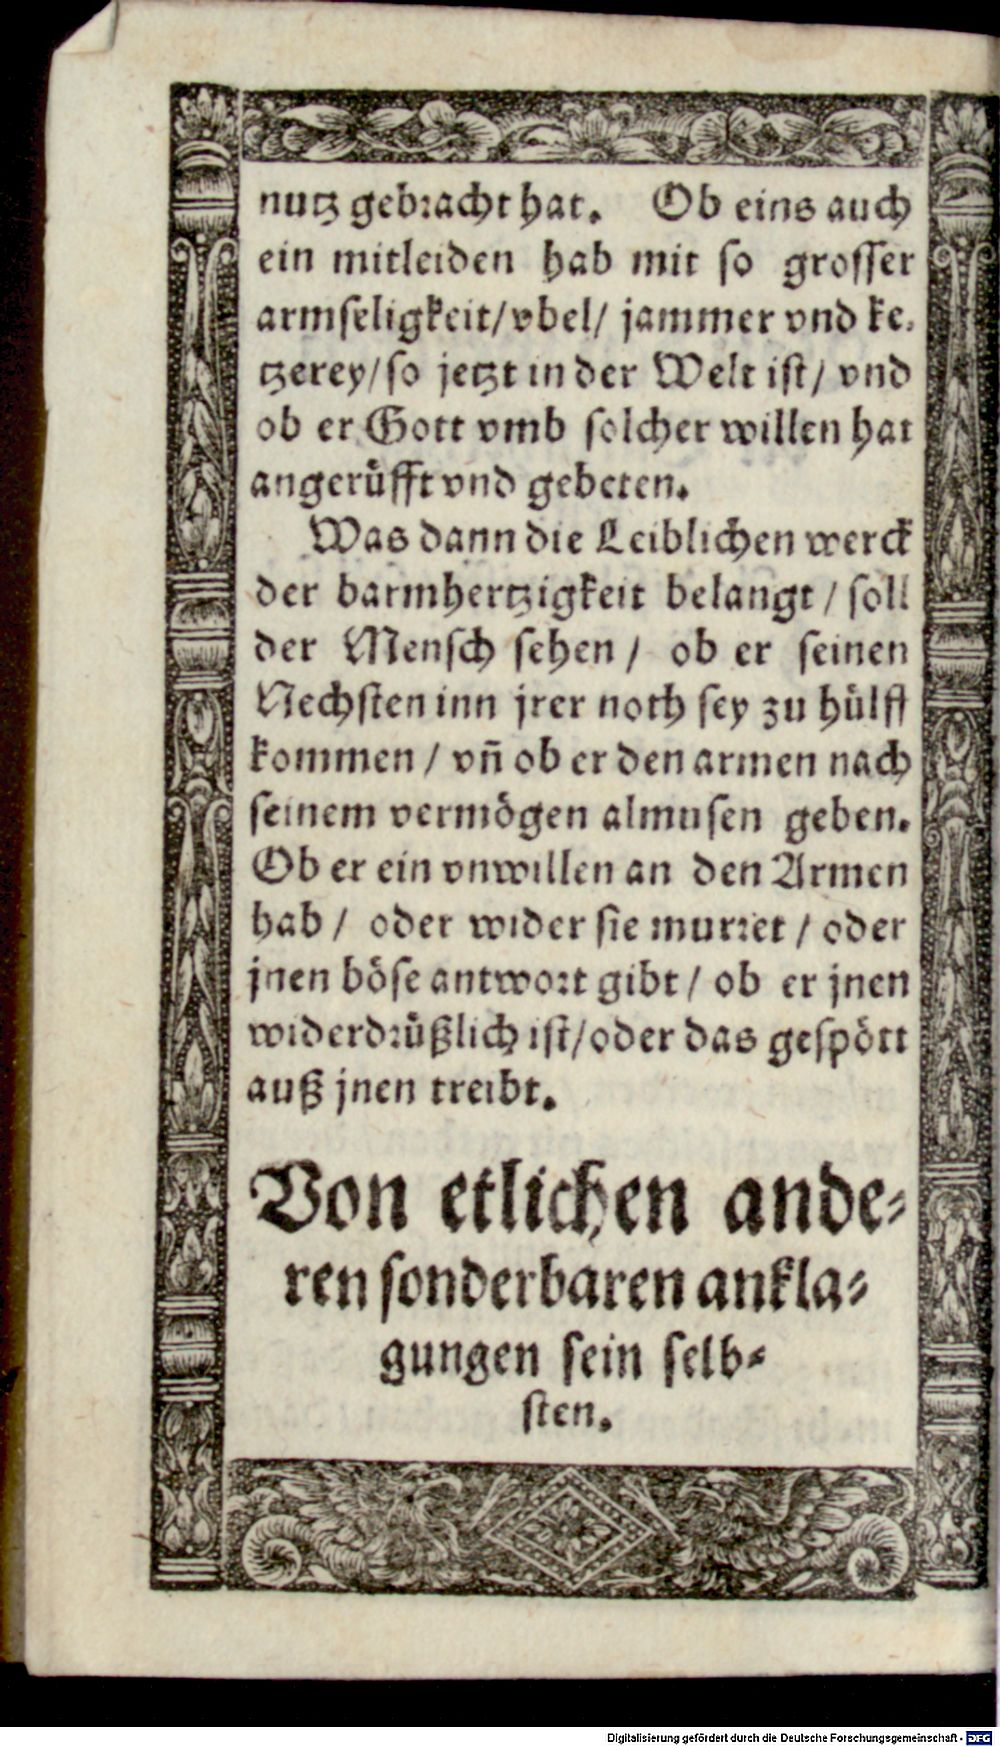 nutz gebracht hat. Ob eins auch
ein mitleiden hab mit so grosser
armseligkeit/ vbel/ jammer vnd ke-
tzerey/ so jetzt in der Welt ist/ vnd
ob er Gott vmb solcher willen hat
angerůfft vnd gebeten.
Was dann die Leiblichen werck
der barmhertzigkeit belangt / soll
der Mensch sehen / ob er seinen
Nechsten inn jrer noth sey zu hůlff
kommen / vñ ob er den armen nach
seinem vermögen almusen geben.
Ob er ein vnwillen an den Armen
hab / oder wider sie murret / oder
jnen böse antwort gibt / ob er jnen
widerdrůßlich ist/ oder das gespött
auß jnen treibt.
Von etlichen ande-
ren sonderbaren ankla-
gungen sein selb-
sten.
Digitalisierung gefördert durch die Deutsche Forschungsgemeinschaft - DFG